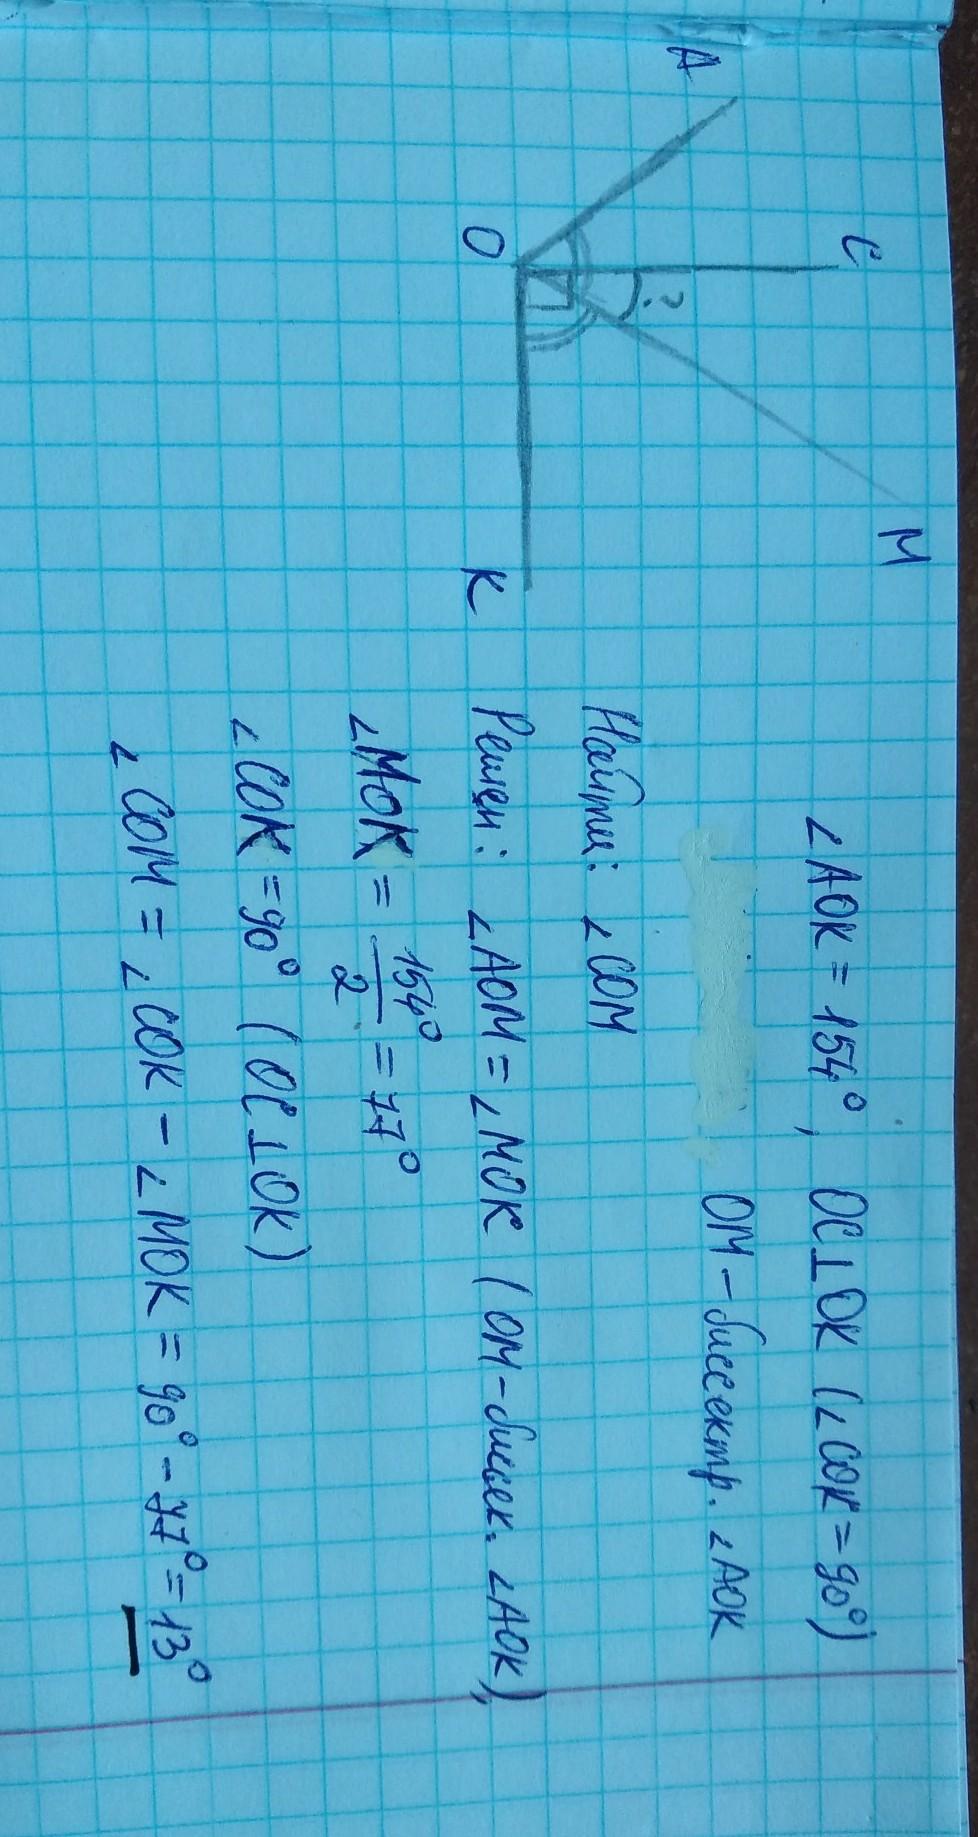 A
C
M
?
O
K
∠AOK = 154°, OC⊥OK (∠COK = 90°)
OM – биссектр. ∠AOK
Найти: ∠COM
Решен: ∠AOM = ∠MOK (OM – биссек. ∠AOK),
∠MOK = 154°/2 = 77°
∠COK = 90° (OC⊥OK)
∠COM = ∠COK – ∠MOK = 90° – 77° = 13°